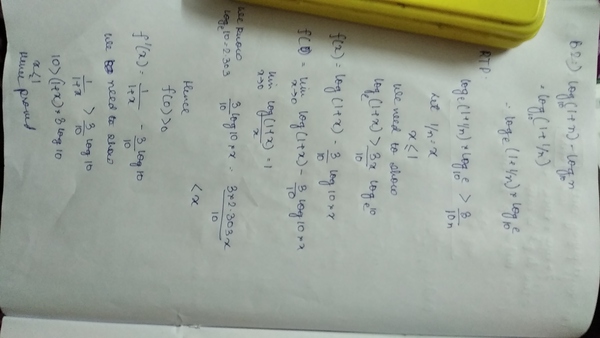 log(1+n) - log n
= log(1+1/n)
= log_e (1+1/n) × log_10 e
RTP:
log_e (1+1/n) × log_10 e > 3/10n
Let 1/n = x
x ≤ 1
We need to show
log_e (1+x) > 3x/10 log_e 10
f(x) = log(1+x) - 3/10 log 10 × x
f(0) = lim x→0 log(1+x) - 3/10 log 10 × x
lim x→0 log(1+x)/x = 1
We know
log_e 10 = 2.303
3/10 log 10 × x = 3×2.303x/10 < x
Hence
f(0) > 0
f'(x) = 1/1+x - 3/10 log 10
We need to show
1/1+x > 3/10 log 10
10 > (1+x) × 3 log 10
x ≤ 1
Hence proved